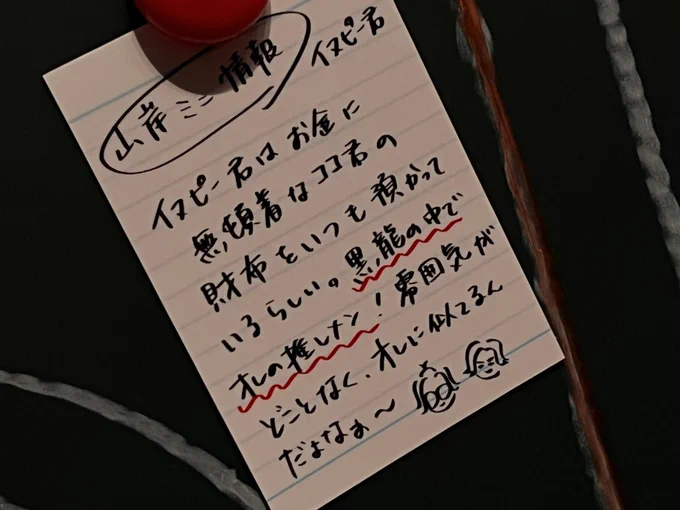 山岸ミニ情報 イヌピー君
イヌピー君はお金に
無頓着なココ君の
財布をいつも預かって
いるらしい。黒龍の中で
オレの推しメン!雰囲気が
どことなく、オレに似てるん
だよなぁ〜